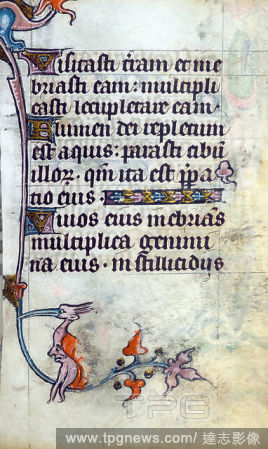 Visitasti t̄ram et ine
briasti eam: multipli
casti locupletare eam.
Flumen dei repletum
est aquis: parasti cibū
illoꝝ. qm̄ ita est p̄pa
tio eius.
Riuos eius inebrians
multiplica genimi
na eius. in stillicidijs
TPG
www.tpgnews.com/達志影像